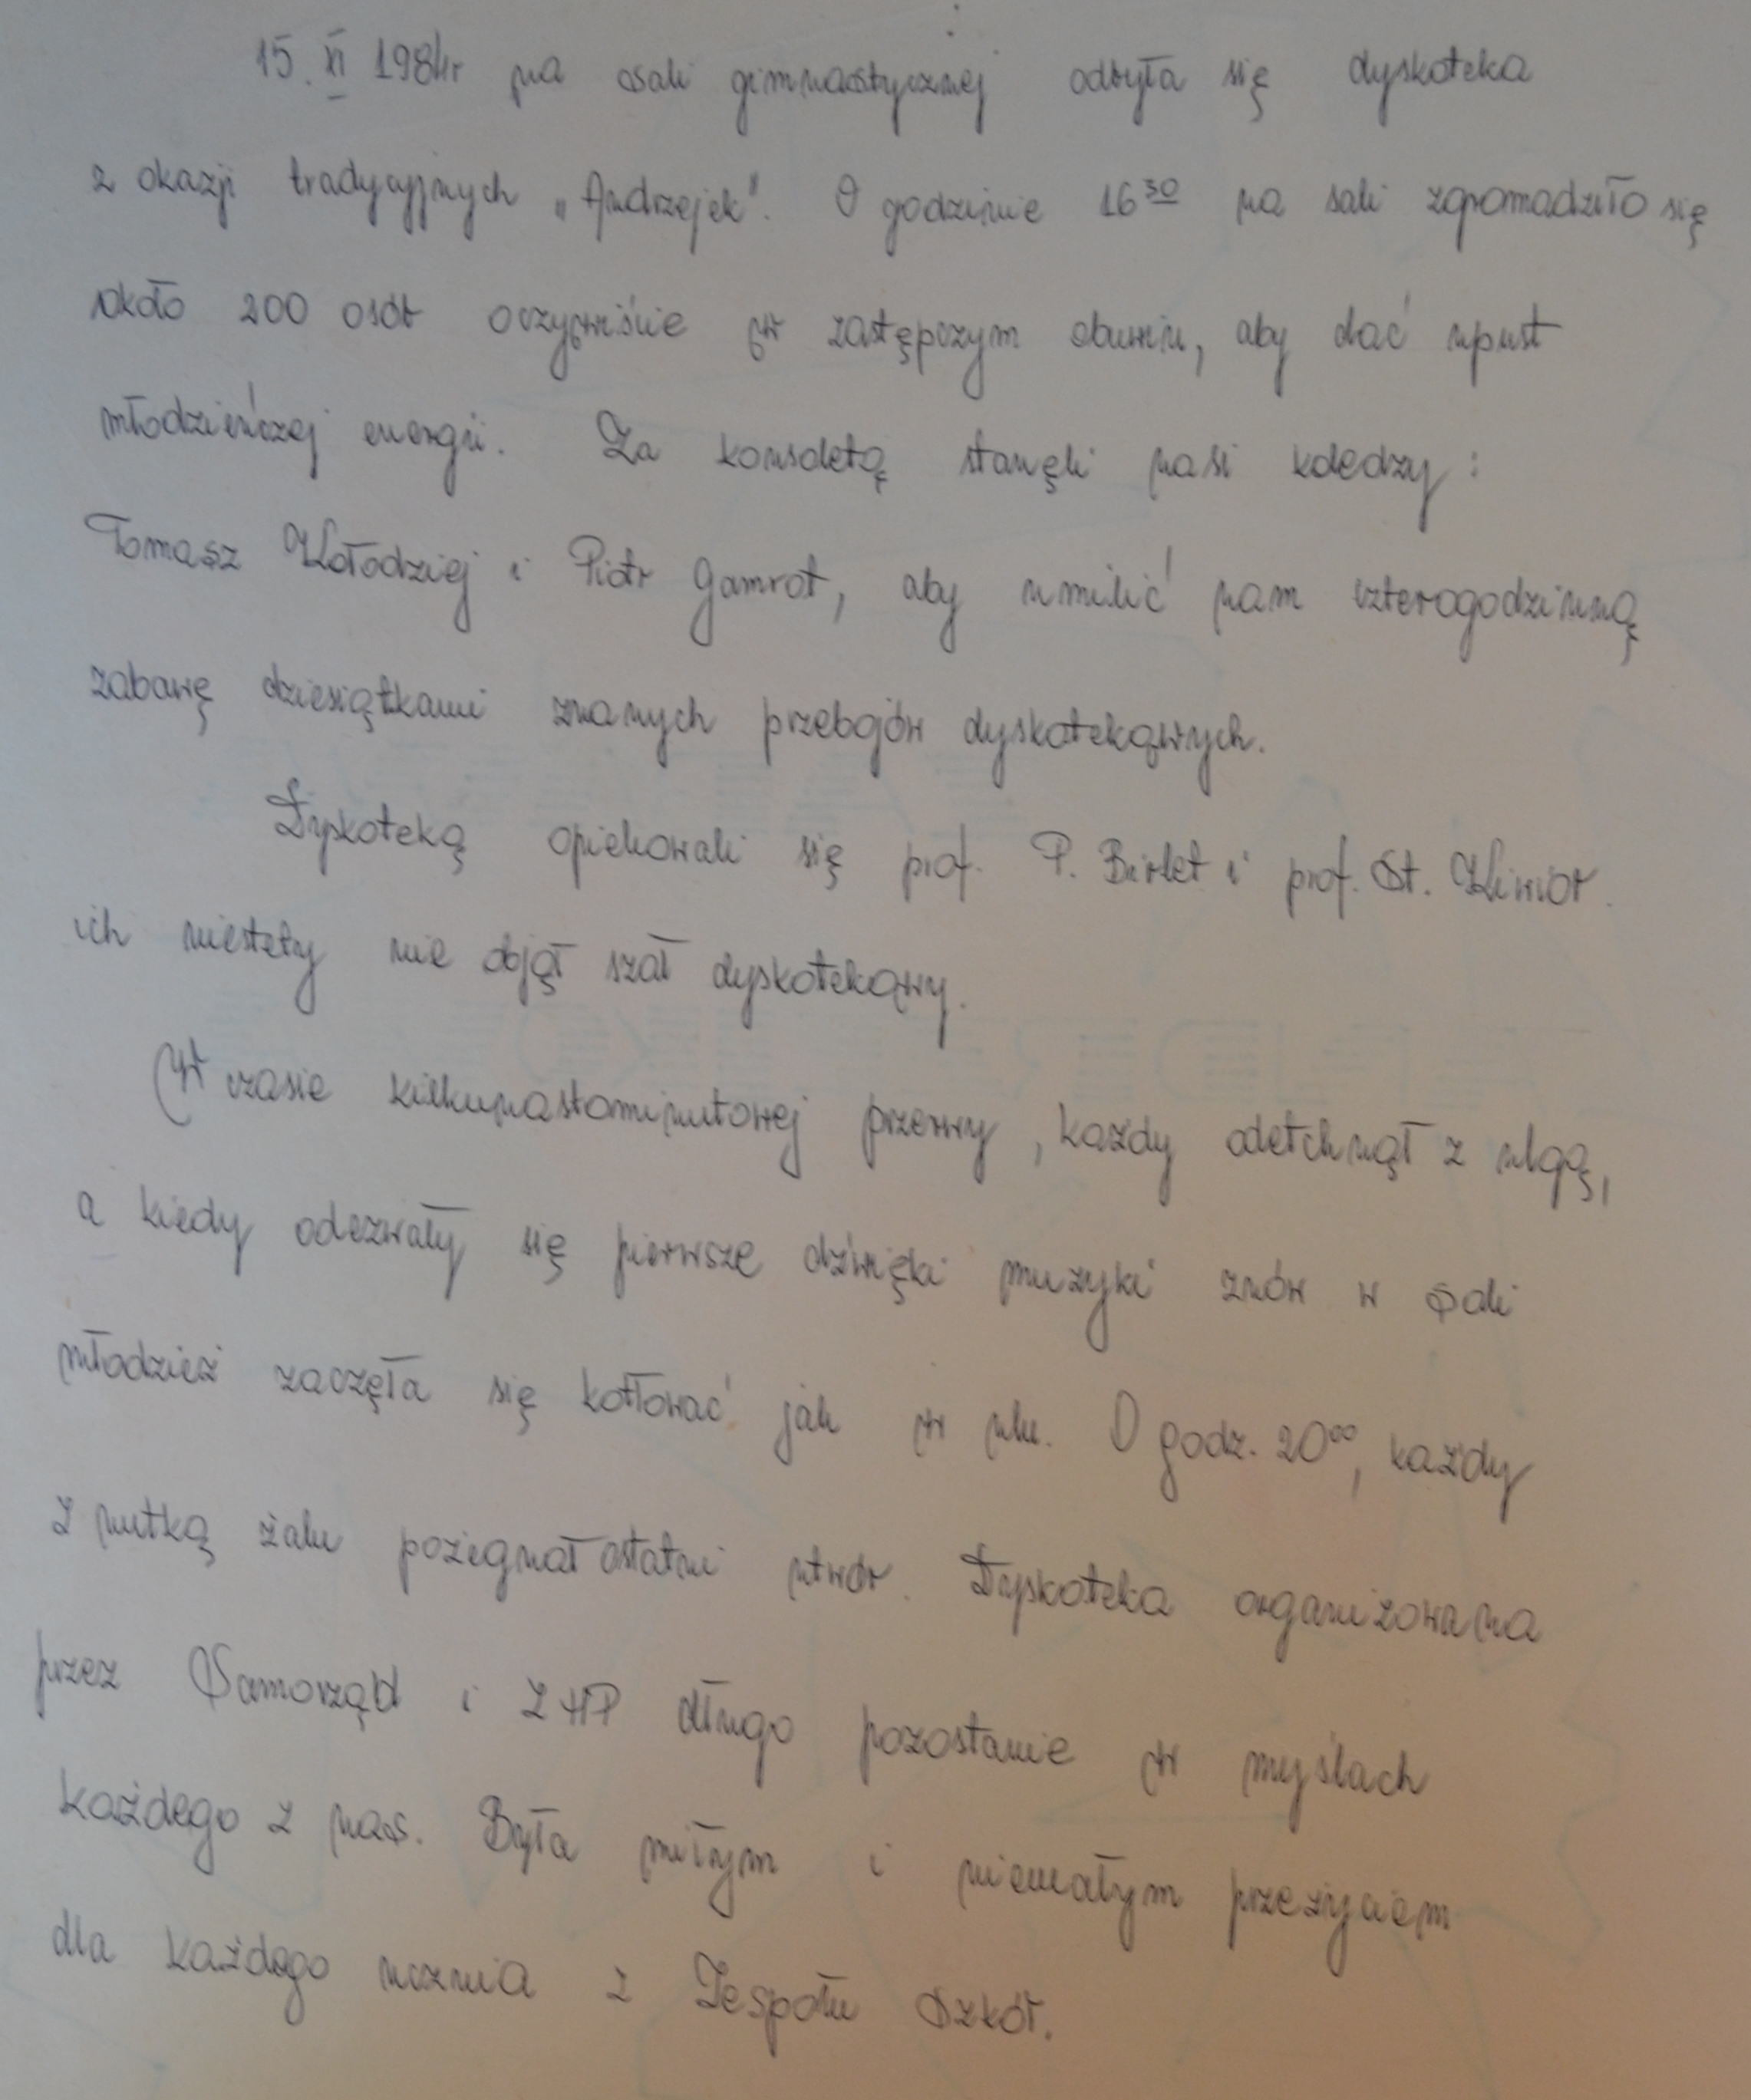 15. XI 1984r na sali gimnastycznej odbyła się dyskoteka
z okazji tradycyjnych „Andrzejek". O godzinie 16³⁰ na sali zgromadziło się
około 200 osób oczywiście w zastępczym obuwiu, aby dać upust
młodzieńczej energii. Za konsoletą stanęli nasi koledzy:
Tomasz Kołodziej i Piotr Gamrot, aby umilić nam czterogodzinną
zabawę dziesiątkami znanych przebojów dyskotekowych.
Dyskoteką opiekowali się prof. P. Birlet i prof. St. Kiwior.
ich niestety nie objął szał dyskotekowy.
W czasie kilkunastominutowej przerwy, każdy odetchnął z ulgą,
a kiedy odezwały się pierwsze dźwięki muzyki znów w sali
młodzież zaczęła się kotłować jak w ulu. O godz. 20⁰⁰, każdy
z nutką żalu pożegnał ostatni utwór. Dyskoteka organizowana
przez Samorząd i ZHP długo pozostanie w myślach
każdego z nas. Była miłym i niemałym przeżyciem
dla każdego ucznia z Zespołu Szkół.